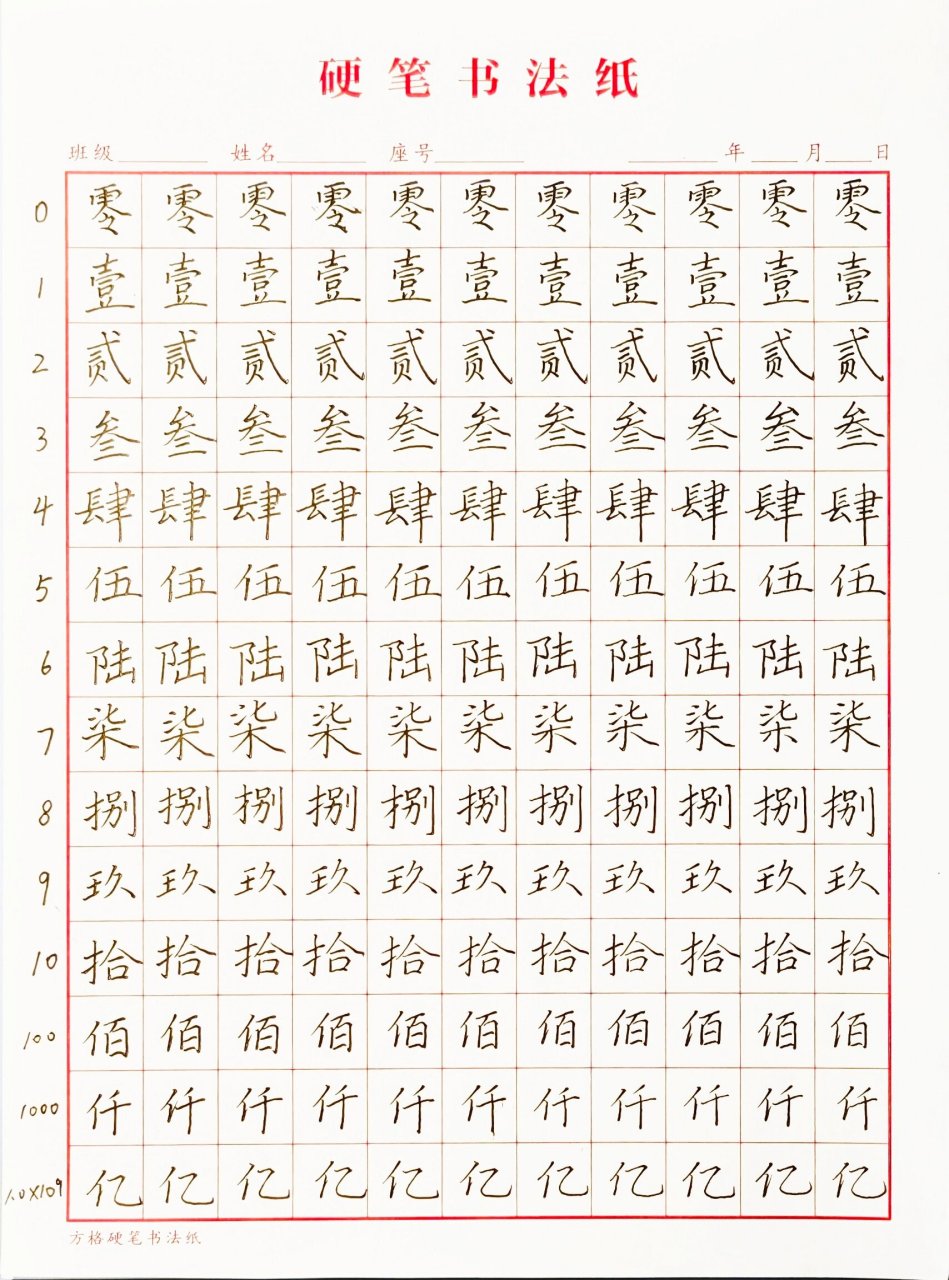 硬笔书法纸
班级 姓名 座号 年 月 日
0 零 零 零 零 零 零 零 零 零 零 零
1 壹 壹 壹 壹 壹 壹 壹 壹 壹 壹 壹
2 贰 贰 贰 贰 贰 贰 贰 贰 贰 贰 贰
3 叁 叁 叁 叁 叁 叁 叁 叁 叁 叁 叁
4 肆 肆 肆 肆 肆 肆 肆 肆 肆 肆 肆
5 伍 伍 伍 伍 伍 伍 伍 伍 伍 伍 伍
6 陆 陆 陆 陆 陆 陆 陆 陆 陆 陆 陆
7 柒 柒 柒 柒 柒 柒 柒 柒 柒 柒 柒
8 捌 捌 捌 捌 捌 捌 捌 捌 捌 捌 捌
9 玖 玖 玖 玖 玖 玖 玖 玖 玖 玖 玖
10 拾 拾 拾 拾 拾 拾 拾 拾 拾 拾 拾
100 佰 佰 佰 佰 佰 佰 佰 佰 佰 佰 佰
1000 仟 仟 仟 仟 仟 仟 仟 仟 仟 仟 仟
1.0X109 亿 亿 亿 亿 亿 亿 亿 亿 亿 亿 亿
方格硬笔书法纸